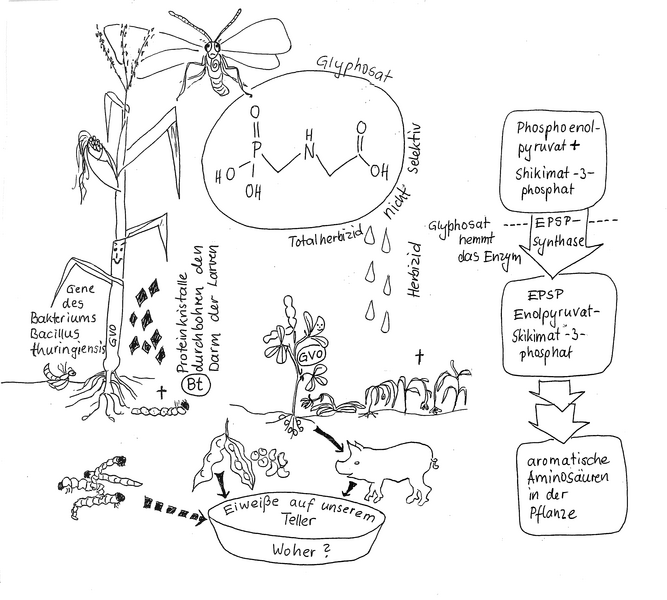 Glyphosat
O
P
HO
OH
H
N
O
OH
Totalherbizid
nicht selektiv
Herbizid
Gene
des
Bakteriums
Bacillus
thuringiensis
GVO
Proteinkristalle
durchbohren den
Darm der Larven
Bt
GVO
Eiweiße auf unserem
Teller
Woher ?
Phosphoenol-
pyruvat +
Shikimat-3-
phosphat
Glyphosat
hemmt
das Enzym
EPSP-
synthase
EPSP
Enolpyruvat-
Skikimat-3-
phosphat
aromatische
Aminosäuren
in der
Pflanze